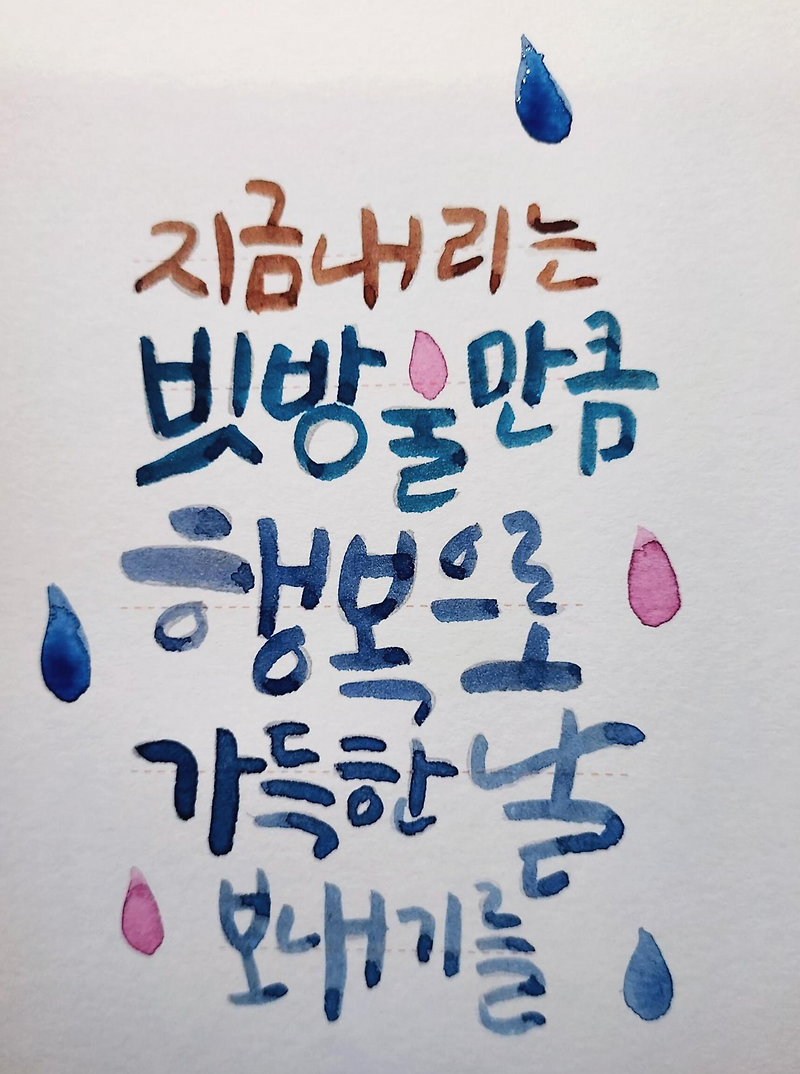 지금 내리는
빗방울만큼
행복으로
가득한 날
보내기를